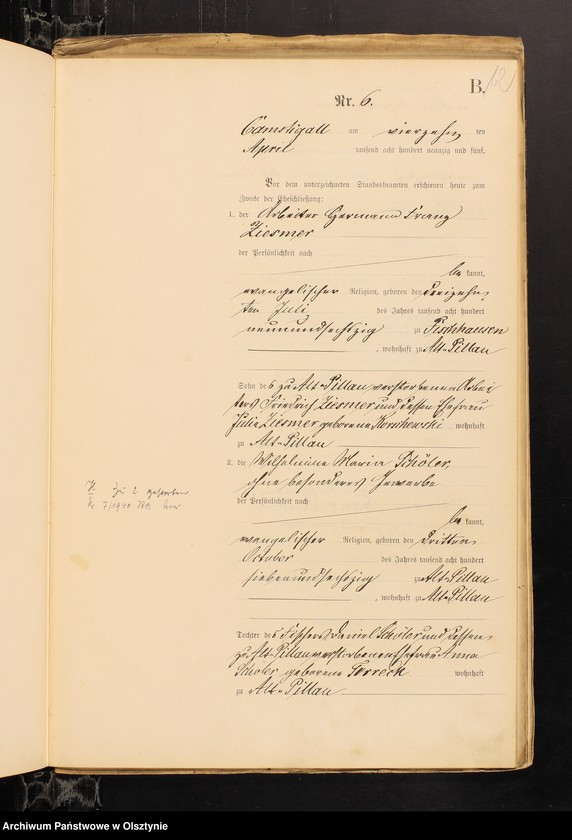 B.
12
Nr. 6.
Camstigall am vierzehn ten
April tausend acht hundert neunzig und fünf.
Vor dem unterzeichneten Standesbeamten erschienen heute zum
Zwecke der Eheschließung:
1. der Arbeiter Hermann Franz
Ziesmer
der Persönlichkeit nach
be kannt,
evangelischer Religion, geboren den dreizehn
ten Juli des Jahres tausend acht hundert
neunundsechszig zu Fischhausen
, wohnhaft zu Alt-Pillau
Sohn des zu Alt-Pillau verstorbenen Arbei
ters Friedrich Ziesmer und dessen Ehefrau
Julie Ziesmer geborene wohnhaft
zu Alt-Pillau
2. die Wilhelmine Maria Schöler,
ohne besonderes Gewerbe
der Persönlichkeit nach
be kannt,
evangelischer Religion, geboren den dritten
October des Jahres tausend acht hundert
siebenundsechszig zu Alt-Pillau
, wohnhaft zu Alt-Pillau
Tochter des Fischers Daniel Schöler und dessen
zu Alt-Pillau verstorbenen Ehefrau Anna
Schöler geborene Terreck wohnhaft
zu Alt-Pillau
H zu 2 gestorben
Nr 7/1940 hier
Archiwum Państwowe w Olsztynie